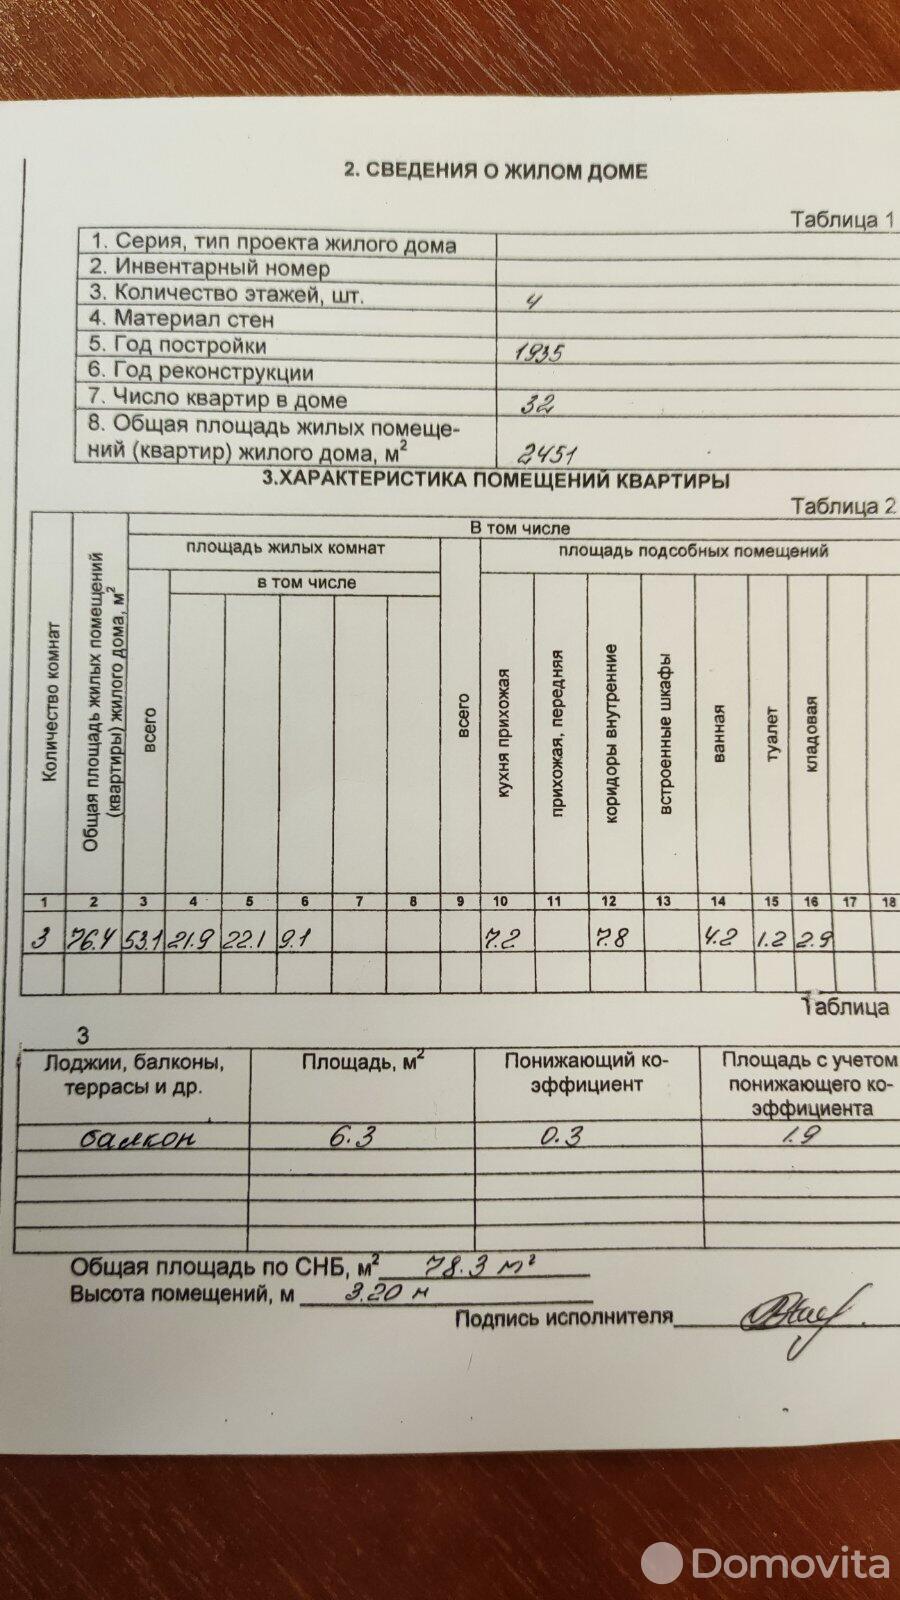 2. СВЕДЕНИЯ О ЖИЛОМ ДОМЕ
Таблица 1
1. Серия, тип проекта жилого дома
2. Инвентарный номер
3. Количество этажей, шт. 4
4. Материал стен
5. Год постройки 1935
6. Год реконструкции
7. Число квартир в доме 32
8. Общая площадь жилых помеще-
ний (квартир) жилого дома, м² 2451
3.ХАРАКТЕРИСТИКА ПОМЕЩЕНИЙ КВАРТИРЫ
Таблица 2
В том числе
площадь жилых комнат
площадь подсобных помещений
в том числе
Количество комнат
Общая площадь жилых помещений
(квартиры) жилого дома, м²
всего
всего
кухня прихожая
прихожая, передняя
коридоры внутренние
встроенные шкафы
ванная
туалет
кладовая
1 2 3 4 5 6 7 8 9 10 11 12 13 14 15 16 17 18
3 76.4 53.1 21.9 22.1 9.1 7.2 7.8 4.2 1.2 2.9
Таблица
3
Лоджии, балконы,
террасы и др.
Площадь, м²
Понижающий ко-
эффициент
Площадь с учетом
понижающего ко-
эффициента
балкон 6.3 0.3 1.9
Общая площадь по СНБ, м² 78.3 м²
Высота помещений, м 3.20 м
Подпись исполнителя
Domovita